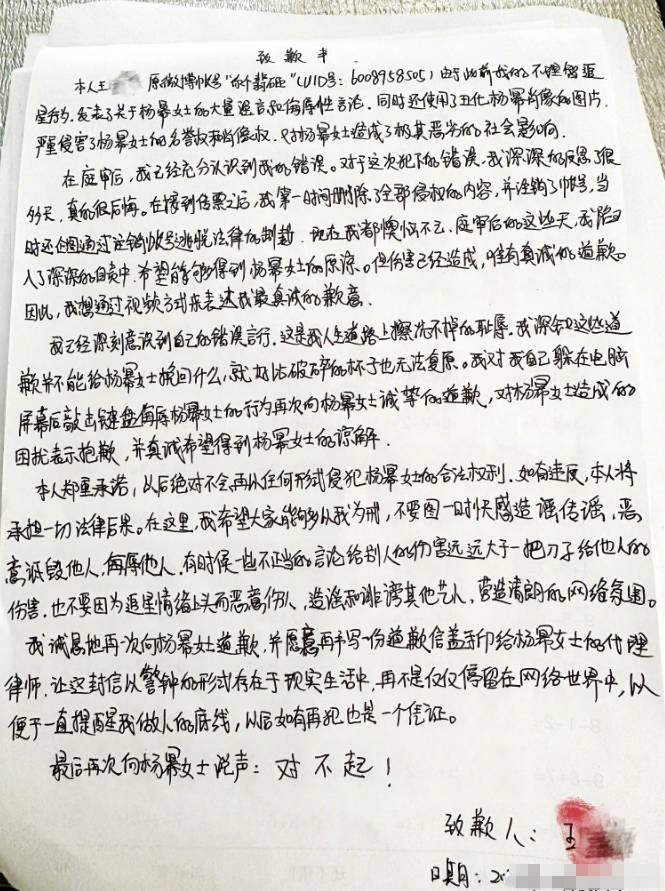 致歉书
本人王 原微博帐号“ 个翡砸”(UID号:6008958505)由于此前我的不理智追
星行为,发表了关于杨幂女士的大量谣言和侮辱性言论,同时还使用了丑化杨幂肖像的图片
严重侵害了杨幂女士的名誉权和肖像权,对杨幂女士造成了极其恶劣的社会影响.
在庭审后,我已经充分认识到我的错误。对于这次犯下的错误,我深深的反思了很
多天,真的很后悔。在接到传票之后,我第一时间删除了全部侵权的内容,并注销了帐号,当
时还企图通过注销帐号逃脱法律的制裁.现在我都懊悔不已,庭审后的这些天,我陷
入了深深的自责中,希望能够得到杨幂女士的原谅。但伤害已经造成,唯有真诚的道歉。
因此,我想通过视频方式来表达我最真诚的歉意.
我已经深刻意识到自己的错误言行.这是我人生道路上擦洗不掉的耻辱.我深知这些道
歉并不能给杨幂女士挽回什么,就好比破碎的杯子也无法复原。我对我自己躲在电脑
屏幕后敲击键盘侮辱杨幂女士的行为再次向杨幂女士诚挚的道歉,对杨幂女士造成的
困扰表示抱歉,并真诚希望得到杨幂女士的谅解.
本人郑重承诺,以后绝对不会再以任何形式侵犯杨幂女士的合法权利.如有违反,本人将
承担一切法律后果。在这里,我希望大家能够以我为刑,不要图一时快感造谣传谣,恶
意诋毁他人,侮辱他人.有时候一些不当的言论给别人的伤害远远大于一把刀子给他人的
伤害.也不要因为追星情绪上头而恶意伤人,造谣和诽谤其他艺人,营造清朗的网络氛围。
我诚恳地再次向杨幂女士道歉,并愿意再手写一份道歉信盖手印给杨幂女士的代理
律师.让这封信以警钟的形式存在于现实生活中,再不是仅仅停留在网络世界中,以
便于一直提醒我做人的底线,以后如有再犯也是一个凭证。
最后再次向杨幂女士说声:对不起!
致歉人:王
日期:20